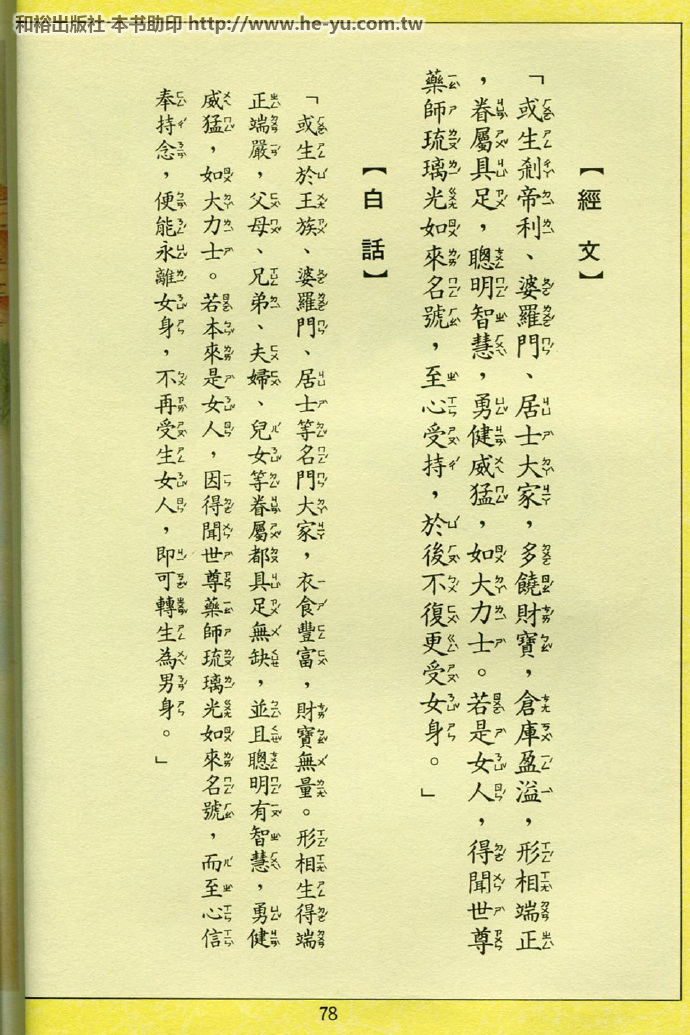 和裕出版社 本书助印 http://www.he-yu.com.tw
【經文】
「或生剎帝利、婆羅門、居士大家，多饒財寶，倉庫盈溢，形相端正
，眷屬具足，聰明智慧，勇健威猛，如大力士。若是女人，得聞世尊
藥師琉璃光如來名號，至心受持，於後不復更受女身。」
【白話】
「或生於王族、婆羅門、居士等名門大家，衣食豐富，財寶無量。形相生得端
正端嚴，父母、兄弟、夫婦、兒女等眷屬都具足無缺，並且聰明有智慧，勇健
威猛，如大力士。若本來是女人，因得聞世尊藥師琉璃光如來名號，而至心信
奉持念，便能永離女身，不再受生女人，即可轉生為男身。」
78